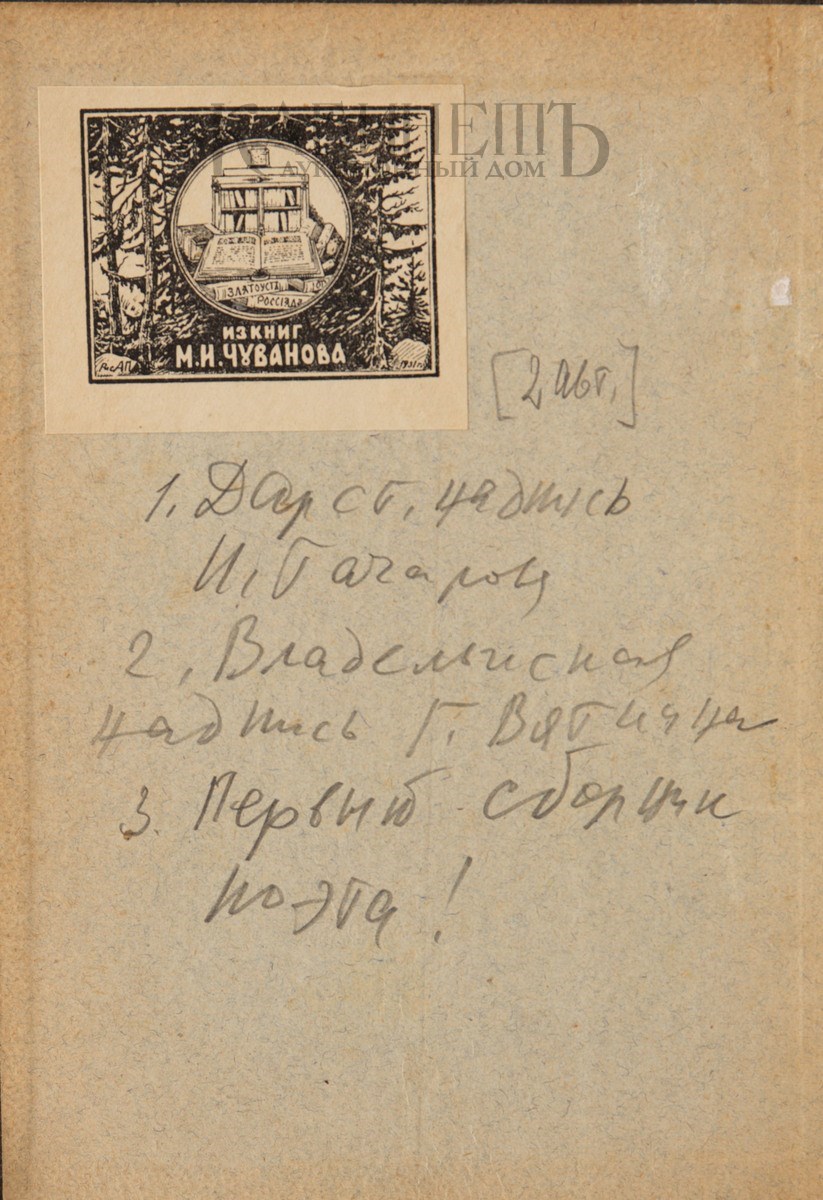 КАБИНЕТЪ
АУКЦИОННЫЙ ДОМ
ЗЛАТОУСТЪ
РОССIЯДА
ИЗ КНИГ
М.И.ЧУВАНОВА
Рис АП
1931 г.
[2 авт.]
1. Дарст. надпись
И. Гачарова
2. Владельческая
надпись Г. Вятича
3. Первый сборник
поэта!